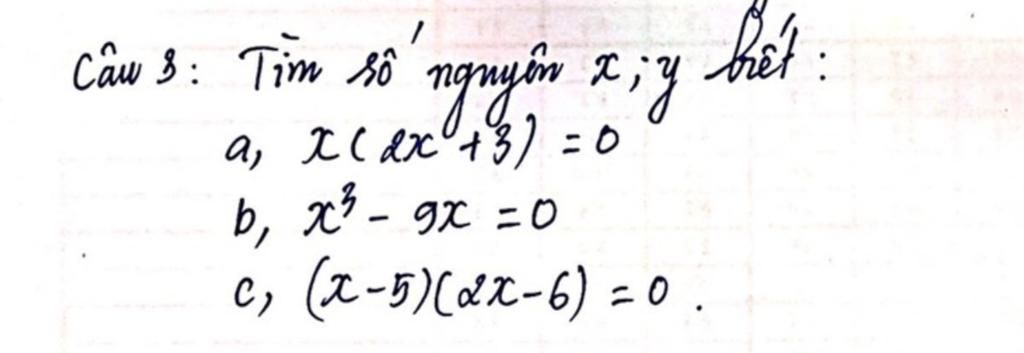 Câu 3: Tìm số nguyên x; y biết:
a, x(2x+3) = 0
b, x³ - 9x = 0
c, (x-5)(2x-6) = 0.